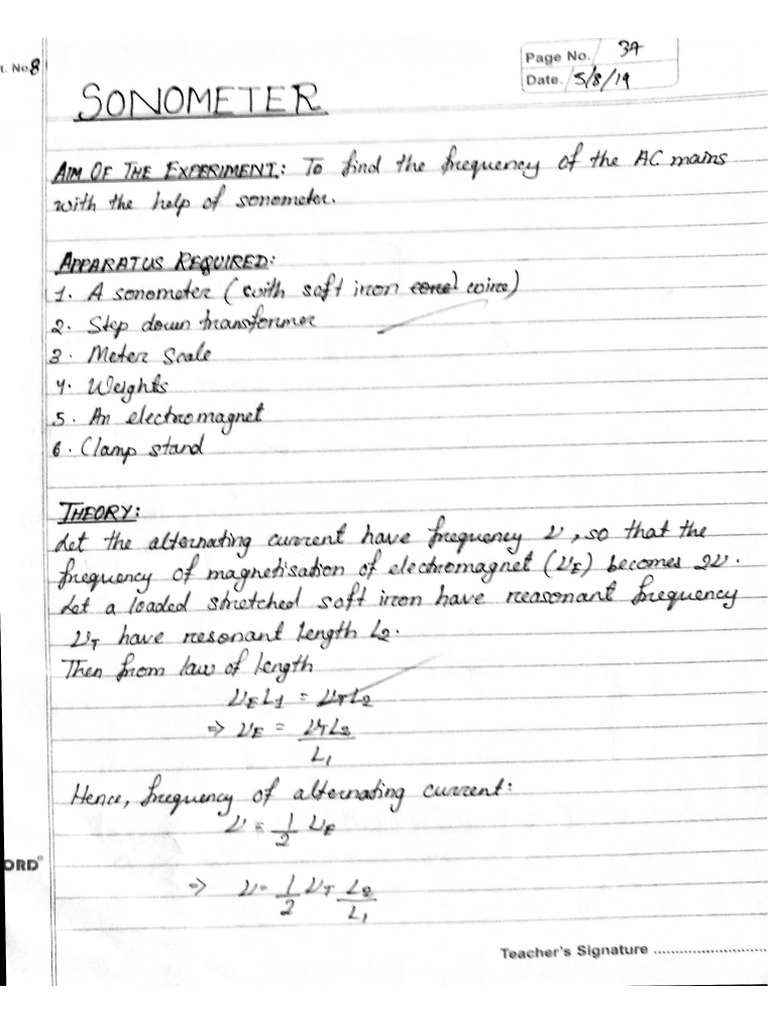 t. No 8
Page No. 37
Date. 5/8/19
SONOMETER
AIM OF THE EXPERIMENT: To find the frequency of the AC mains
with the help of sonometer.
APPARATUS REQUIRED:
1. A sonometer (with soft iron wire)
2. Step down transformer
3. Meter Scale
4. Weights
5. An electromagnet
6. Clamp stand
THEORY:
Let the alternating current have frequency ν, so that the
frequency of magnetisation of electromagnet (νE) becomes 2ν.
Let a loaded stretched soft iron have reasonant frequency
νT have resonant length L2.
Then from law of length
νE L1 = νT L2
⇒ νE = νT L2 / L1
Hence, frequency of alternating current:
ν = 1/2 νE
⇒ ν = 1/2 νT L2/L1
ORD®
Teacher's Signature ..........................